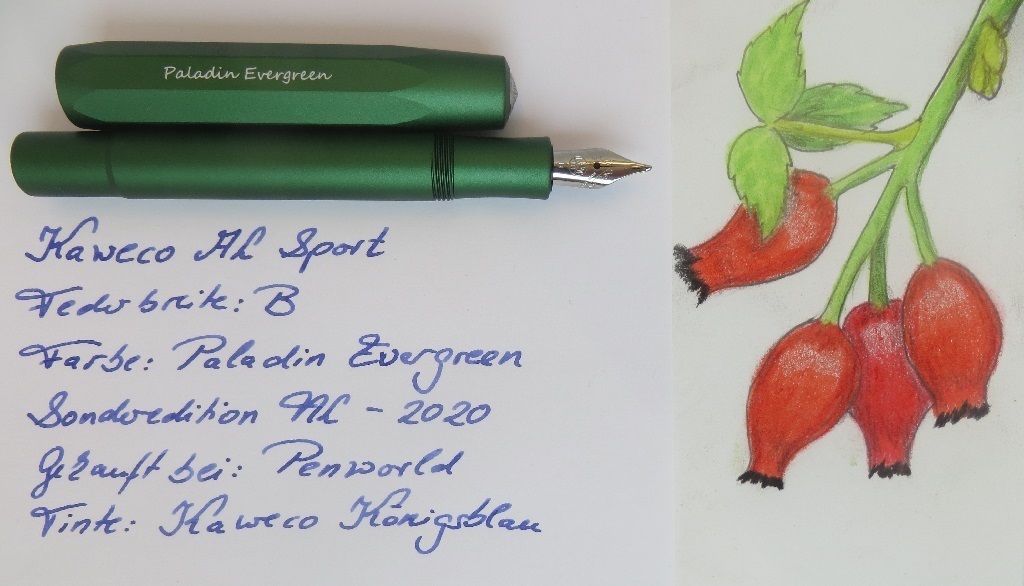 Paladin Evergreen
Kaweco AL Sport
Federbreite: B
Farbe: Paladin Evergreen
Sonderedition NL - 2020
Gekauft bei: Penworld
Tinte: Kaweco Königsblau